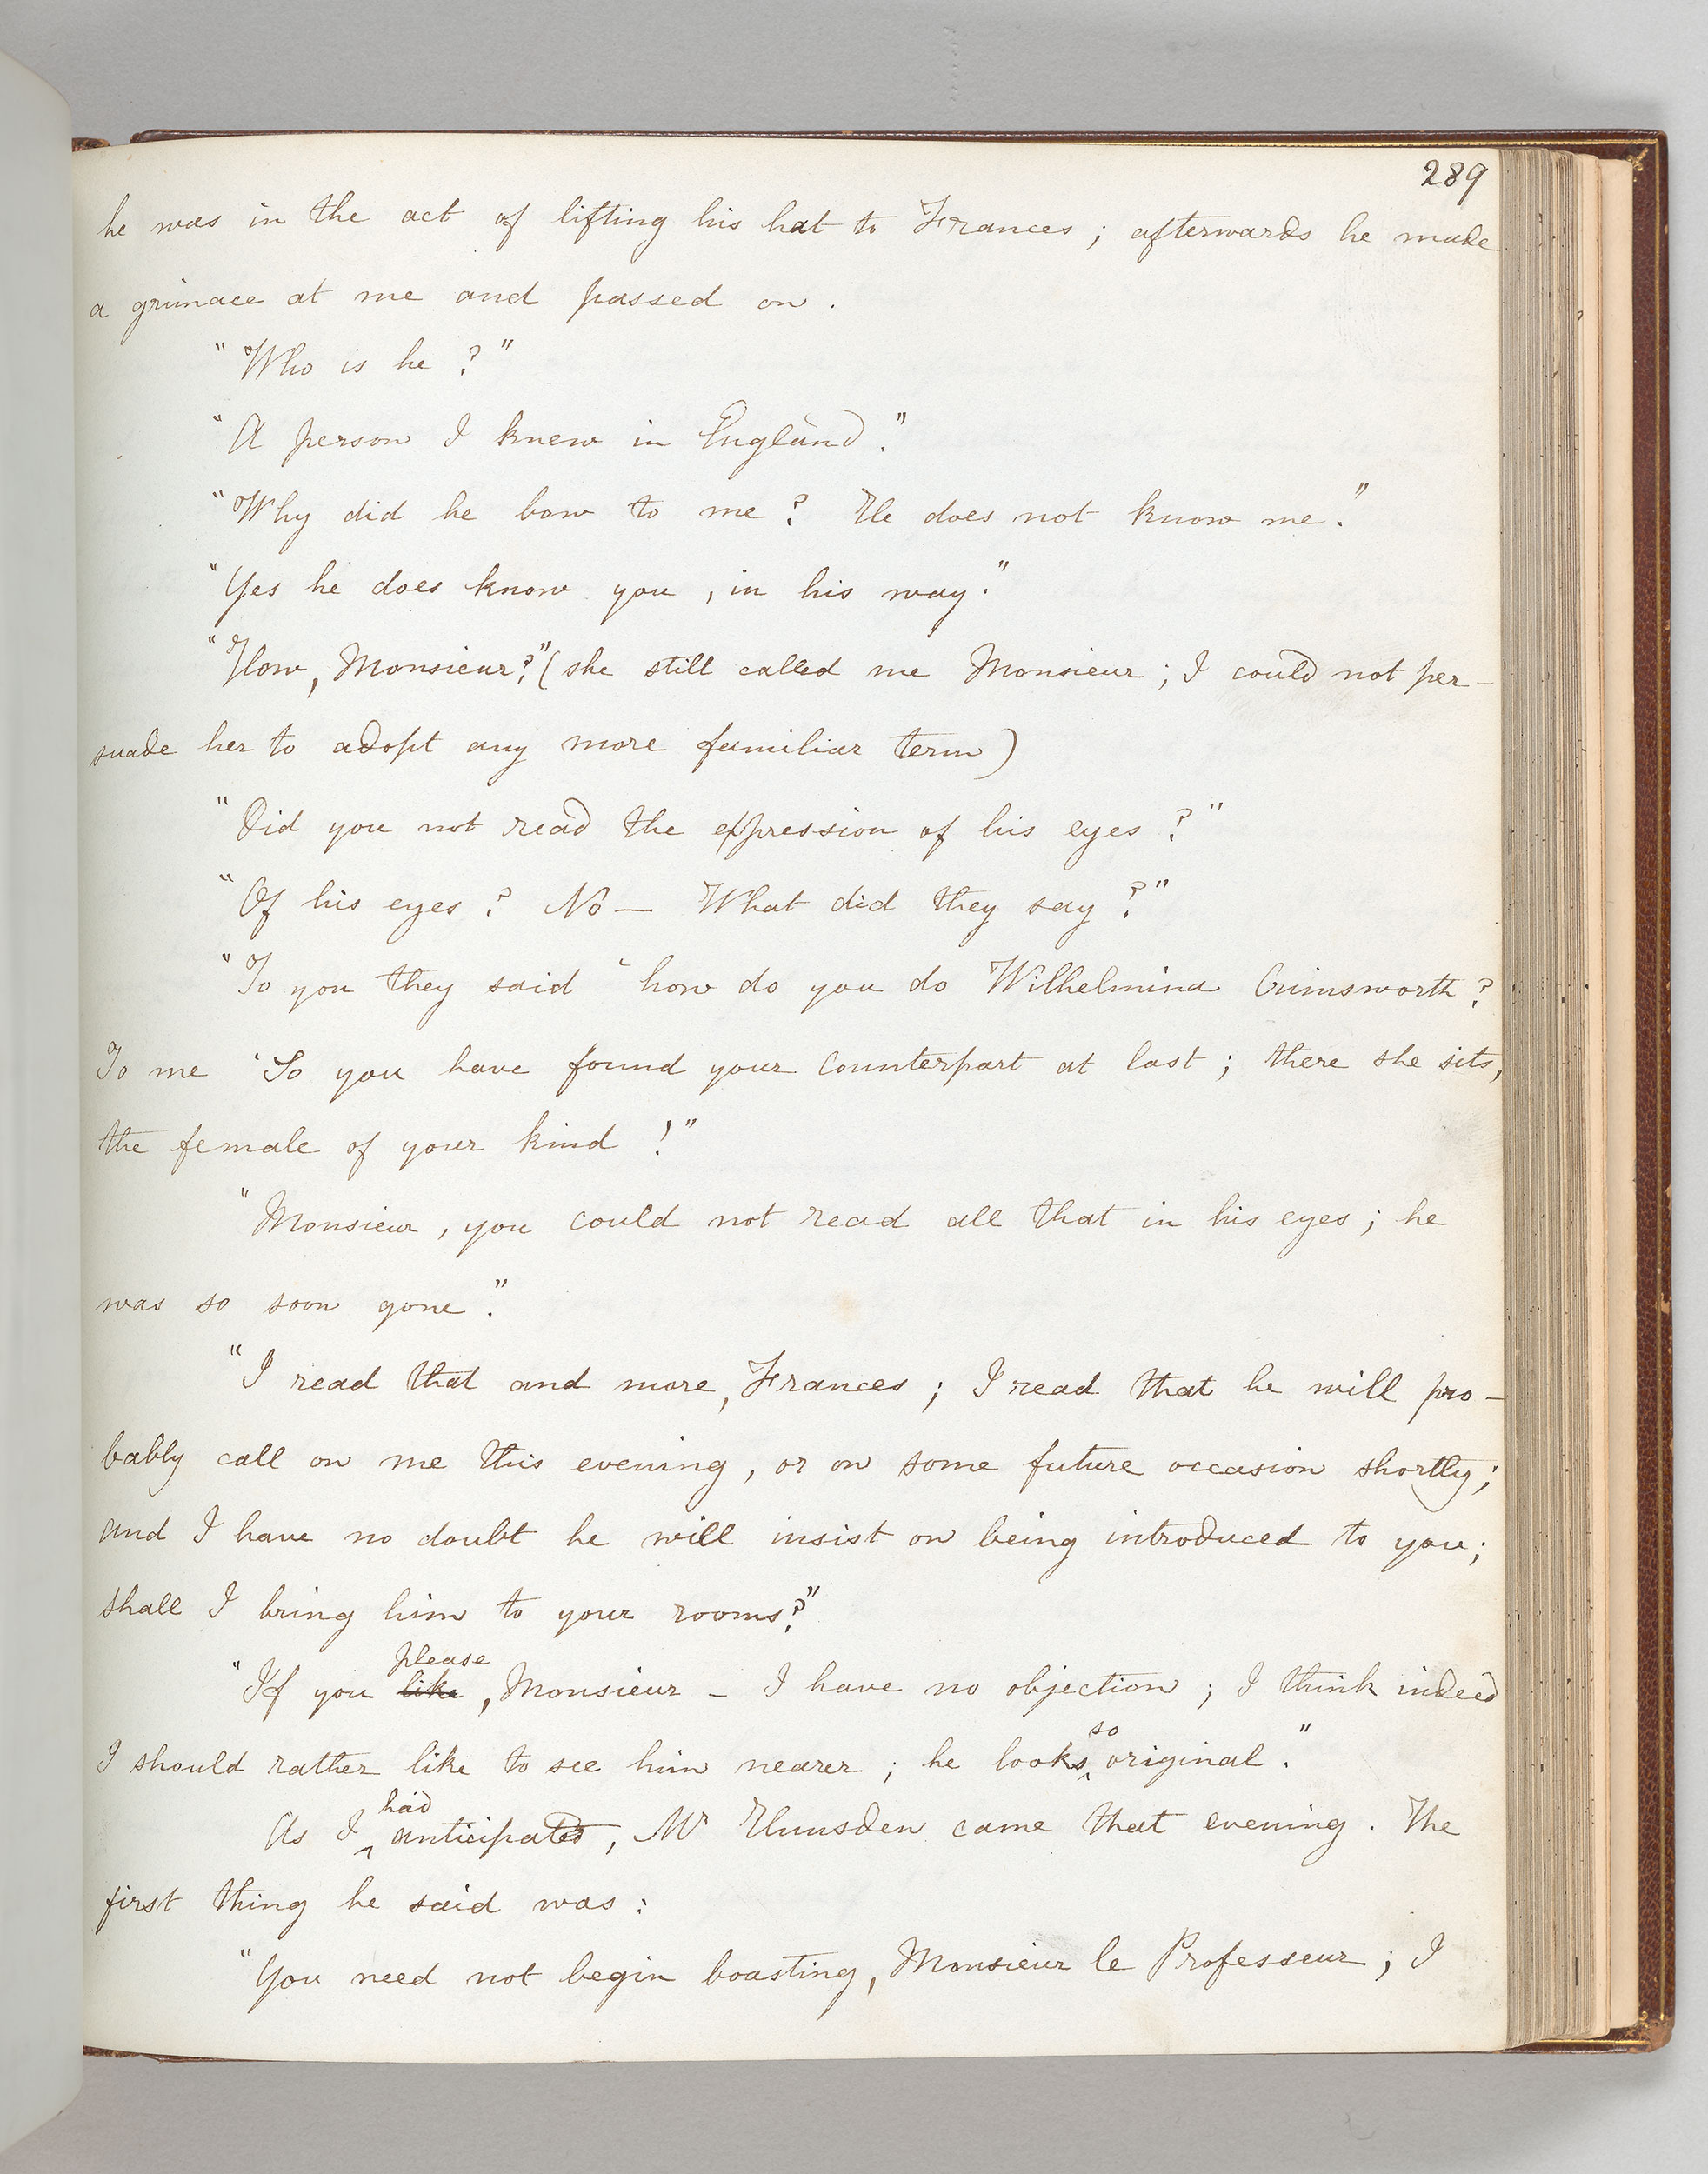 289
he was in the act of lifting his hat to Frances ; afterwards he made
a grimace at me and passed on .
" Who is he ? "
" A person I knew in England . "
" Why did he bow to me ? He does not know me . "
" Yes he does know you , in his way . "
" How , Monsieur ? " ( she still called me Monsieur ; I could not per-
suade her to adopt any more familiar term )
" Did you not read the expression of his eyes ? "
" Of his eyes ? No — What did they say ? "
" To you they said ' how do you do Wilhelmina Crimsworth ?
To me ' So you have found your counterpart at last ; there she sits,
the female of your kind ! "
" Monsieur , you could not read all that in his eyes ; he
was so soon gone . "
" I read that and more , Frances ; I read that he will pro-
bably call on me this evening , or on some future occasion shortly ;
and I have no doubt he will insist on being introduced to you ;
shall I bring him to your rooms ? "
please
" If you like , Monsieur – I have no objection ; I think indeed
so
I should rather like to see him nearer ; he looks ‸ original . "
had
As I ‸ anticipated , Mr Hunsden came that evening . The
first thing he said was :
" You need not begin boasting , Monsieur le Professeur ; I